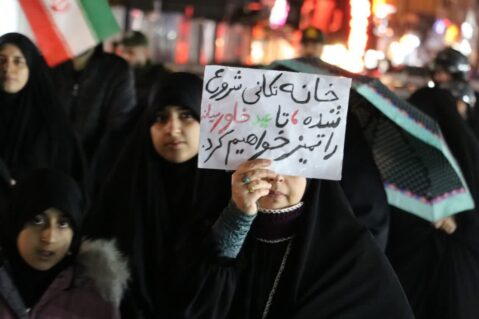 خانه تکانی شروع
شده، تا عید خاورمیانه
را تمیز خواهیم کرد.